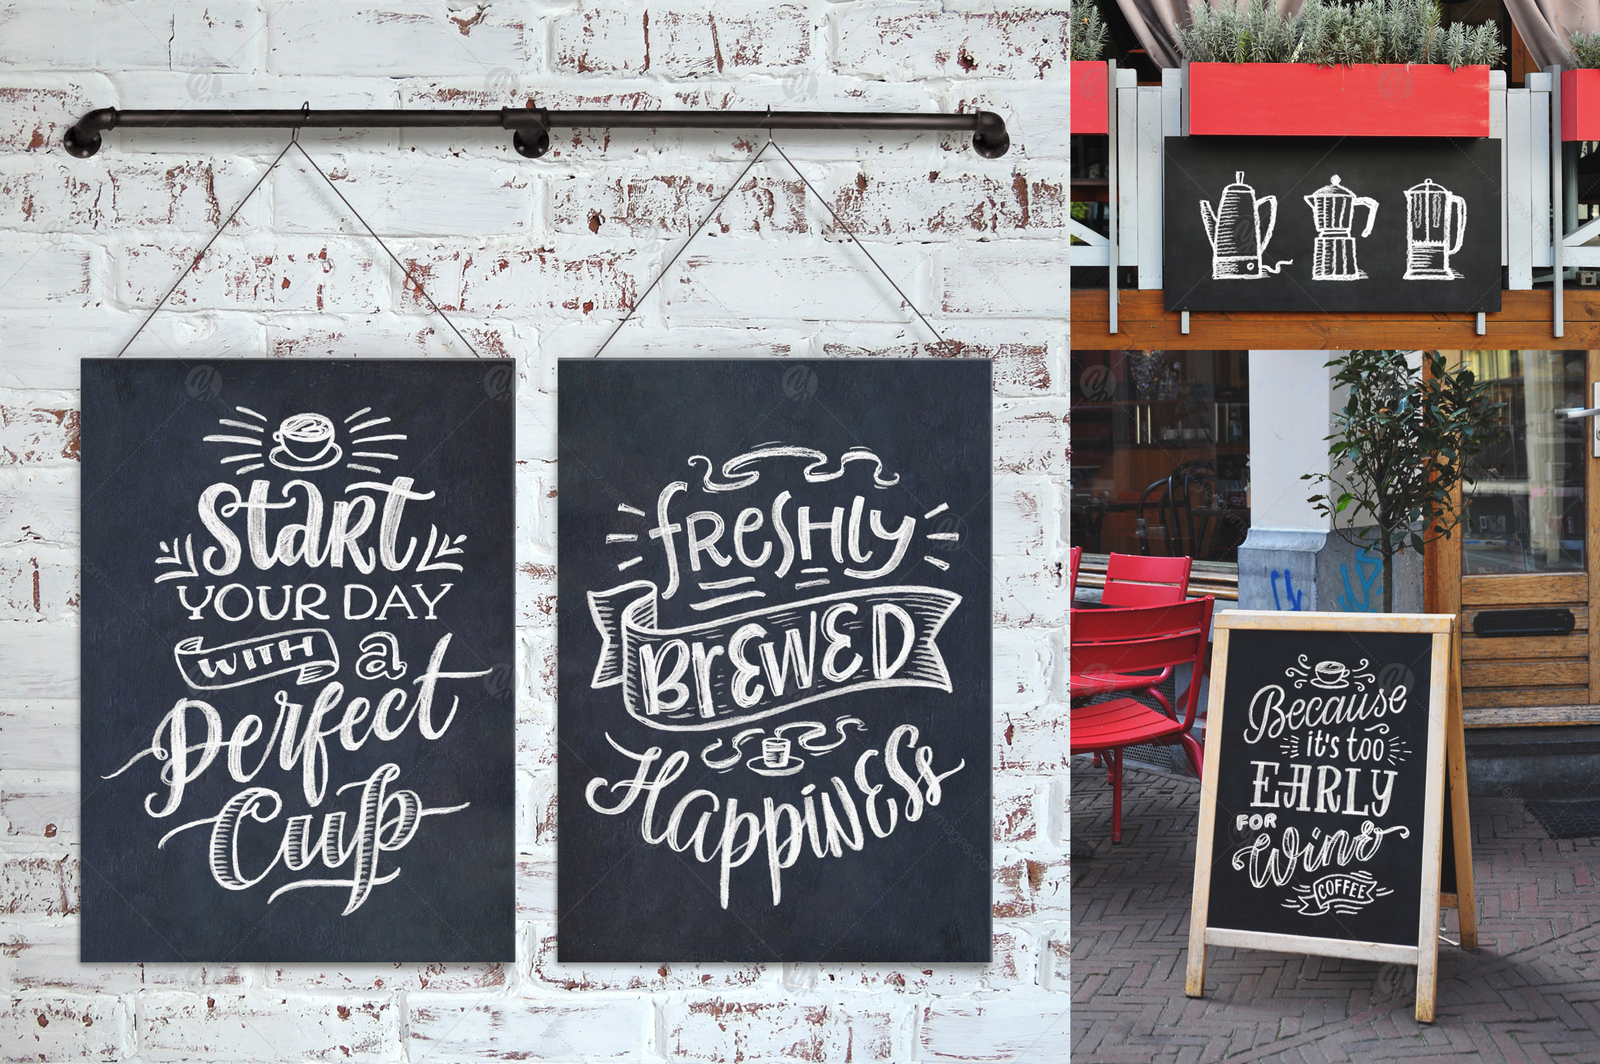 Start
YOUR DAY
WITH a
Perfect
Cup
FRESHLY
BREWED
HAPPINESS
Because
it's too
EARLY
FOR
Wine
COFFEE